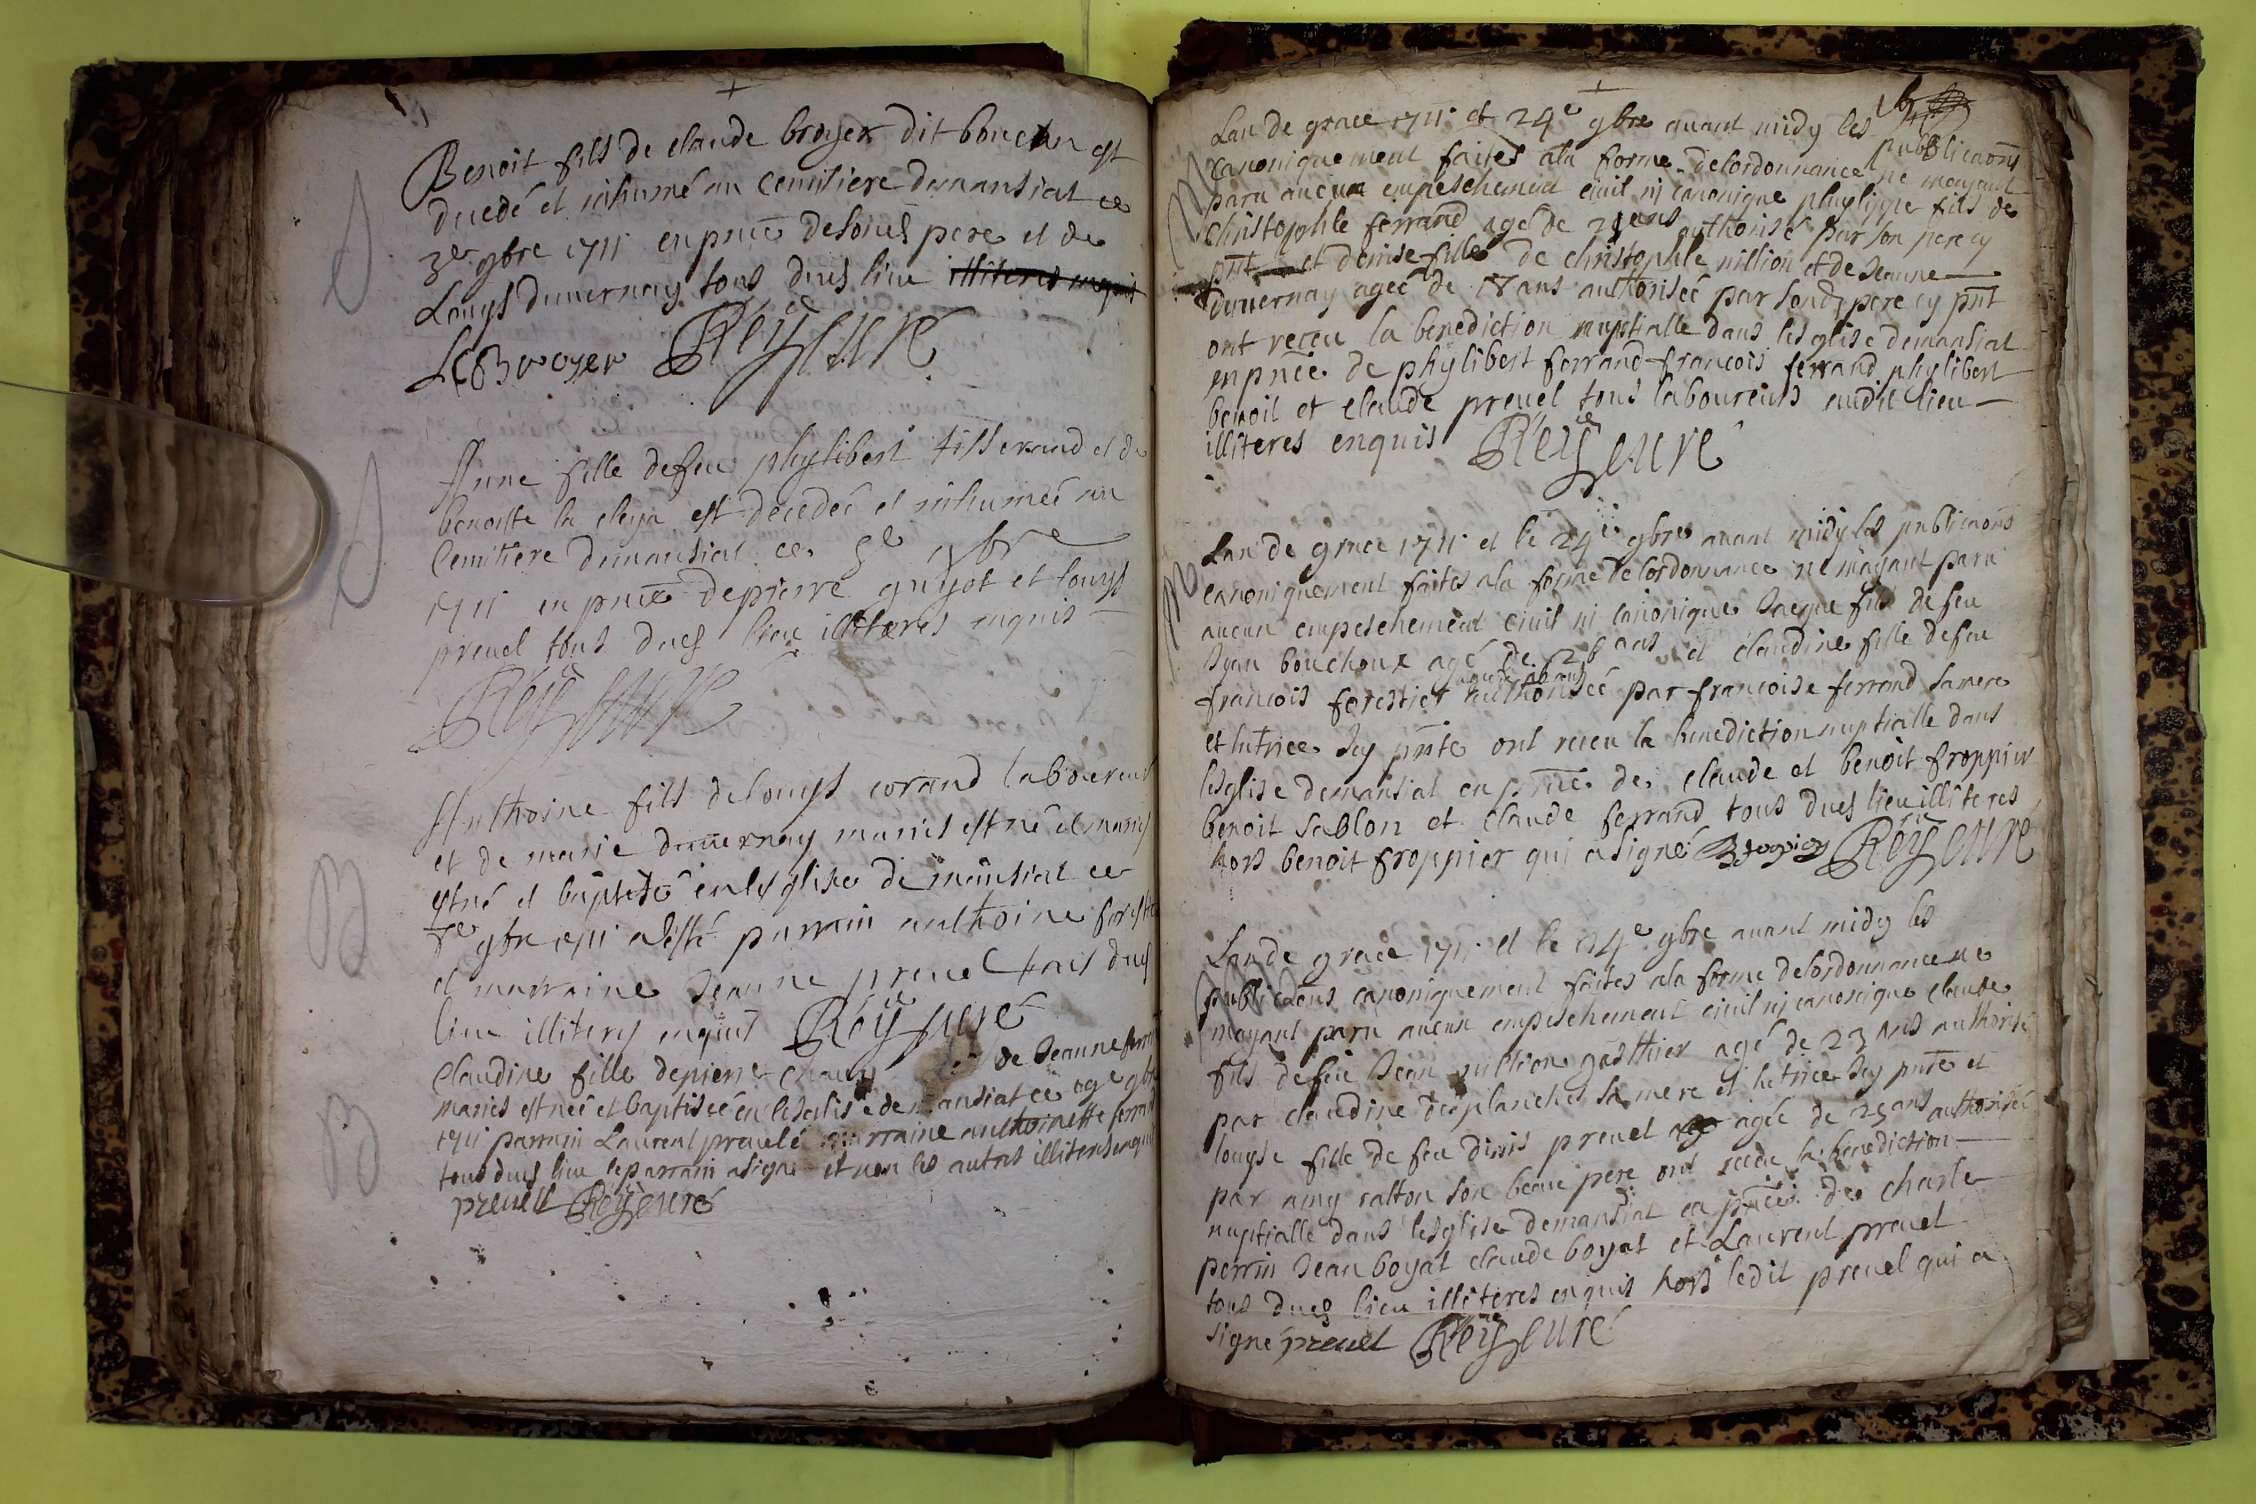 Benoit fils de claude broyer dit bouchn est
decedé et inhumé au cemitiere demansiat ce
3e 9bre 1711 en pnce desond pere et de
Louys duuernay tous dud lieu illiteres enquis
Le Broyer Rey cure
Anne fille defeu phylibert tisserand et de
benoiste la est decedeé et inhumeé au
Cemitiere demansiat ce 5e 9bre
1711 en pnce depierre guyot et louys
preuel tous dud lieu illiteres enquis
Rey cure
Anthoine fils delouys corand laboureur
et de marie duuernay mariés est né et mariés
est né et baptisé en lesglise demansiat ce
7e 9bre 1711 a esté parrain anthoine forest
et marraine Jeanne preuel tous dud
lieu illiteres enquis Rey curé
Claudine fille depierre de Jeanne
mariés est neé et baptiseé en lesglise demansiat ce 9bre
1711 parrain Laurent preuel marraine anthoinette ferrand
tous dud lieu le parrain a signé et non les autres illiteres enquis
preuel Rey curé
Lan de grace 1711 et 24e 9bre auant midy les publicaons
canoniquement faites ala forme delordonnance ne mayant
paru aucun empeschement ciuil ni canonique phylippe fils de
christophle ferrand agé de ans authorisé par son pere cy
pnt et denise fille de christophle nillion et de Jeanne
duuernay ageé de 18 ans authoriseé par sond pere cy pnt
ont receu la benediction nuptialle dans lesglise demansiat
en pnce de phylibert ferrand francois ferrand phylibert
benoit et claude preuel tous laboureurs audit lieu
illiteres enquis Rey cure
Lan de grace 1711 et le 24e 9bre auant midy les publicaons
canoniquement faites ala forme de lordonnance ne mayant paru
aucun empeschement ciuil ni canonique Jacque fils defeu
Jean bouchoux agé de 26 ans et claudine fille defeu
francois forestier authoriseé par francoise ferrand sa mere
et tutrice Icy pnte ont receu la benediction nuptialle dans
lesglise demansiat en pnce de claude et benoit froppier
benoit sablon et claude ferrand tous dud lieu illiteres
hors benoit froppier qui a signé Rey cure
Lan de grace 1711 et le 24e 9bre auant midy les
publicaons canoniquement faites ala forme delordonnance ne
mayant paru aucun empeschement ciuil ni canonique claude
fils defeu Jean nillion gasthier agé de 23 ans authorisé
par claudine desplanches sa mere et tutrice Icy pnte et
louyse fille de feu dinis preuel ageé de 25 ans authoriseé
par amy ratton son beau pere ont receu la benediction
nuptialle dans lesglise demansiat en pnce de charle
perrin Jean boyat claude boyat et Laurent preuel
tous dud lieu illiteres enquis hors ledit preuel qui a
signé preuel Rey curé